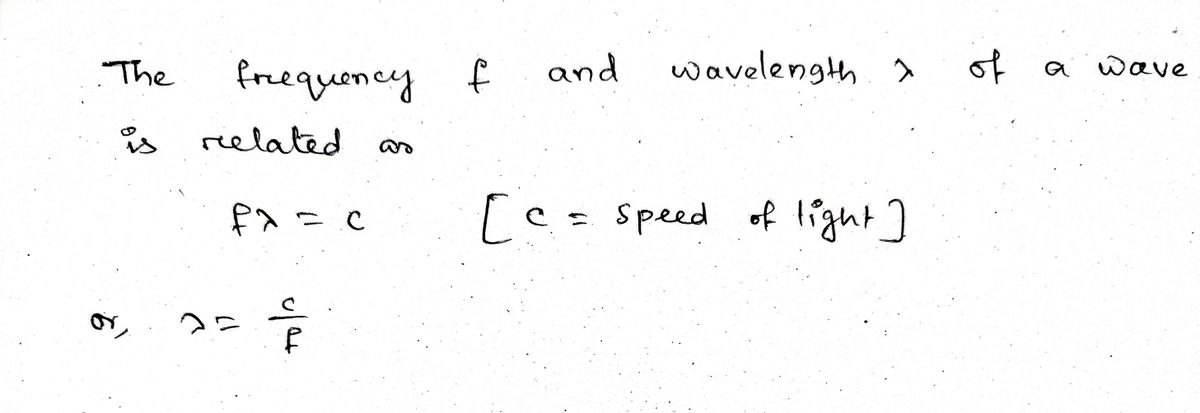 The frequency f and wavelength λ of a wave
is related as
fλ = c [c = speed of light]
or, λ = c/f